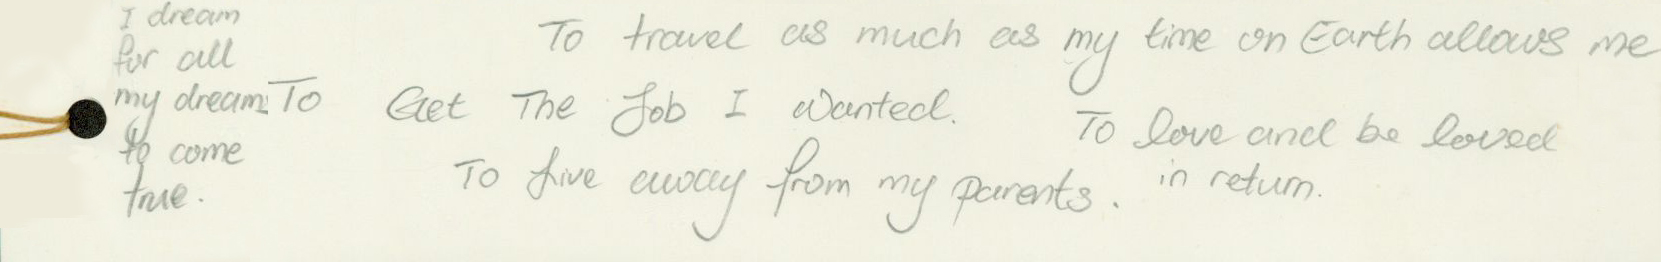 I dream
for all
my dream:
to come
true.
To travel as much as my time on Earth allows me
To Get The Job I wanted.
To love and be loved
in return.
To live away from my parents.